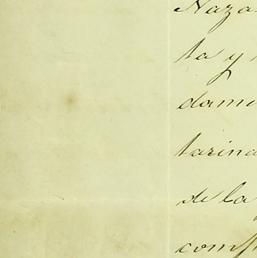 Naza
ta y
dam
tarina
de la
comp